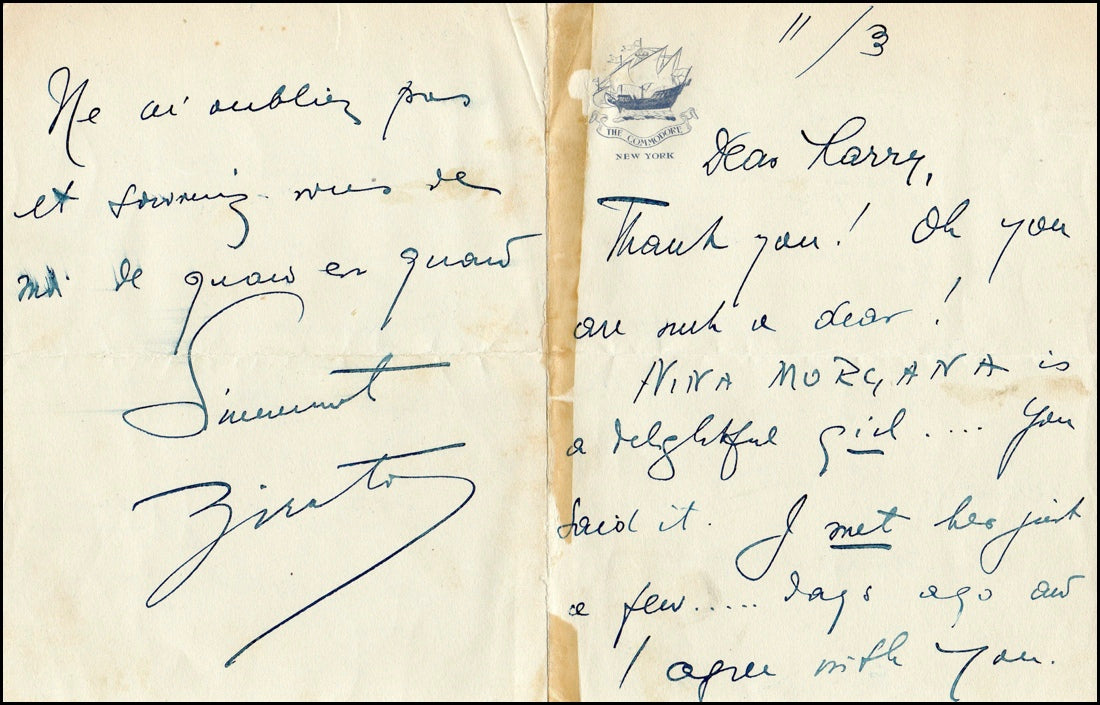 11/3
THE COMMODORE
NEW YORK
Dear Harry,
Thank you! Oh you
are such a dear!
NINA MORGANA is
a delightful girl.... You
said it. I met her just
a few..... days ago and
I agree with you.
Ne m'oubliez pas
et souvenez-vous de
moi de quand en quand
Zirato